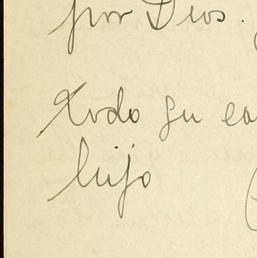 por Dios.
Todo su ca
hijo